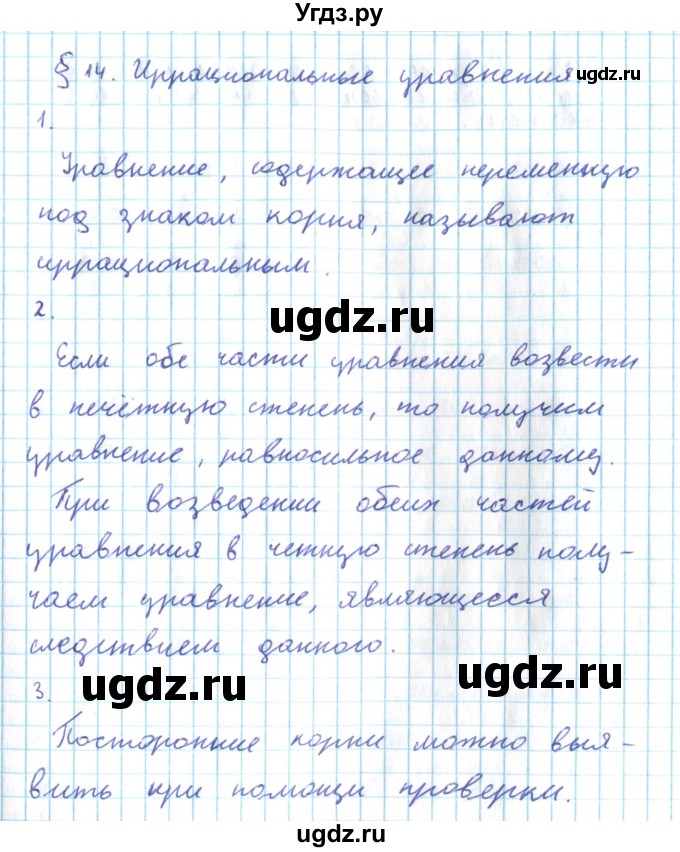 Угдз.ру
§ 14. Иррациональные уравнения. ugdz.ru
1.
Уравнение, содержащее переменную
под знаком корня, называют
иррациональным.
2.
ugdz.ru
Если обе части уравнения возвести
в нечётную степень, то получим
уравнение, равносильное данному.
При возведении обеих частей
уравнения в четную степень полу-
чаем уравнение, являющееся
следствием данного.
3.
ugdz.ru ugdz.ru
Посторонние корни можно выя-
вить при помощи проверки.
ugdz.ru